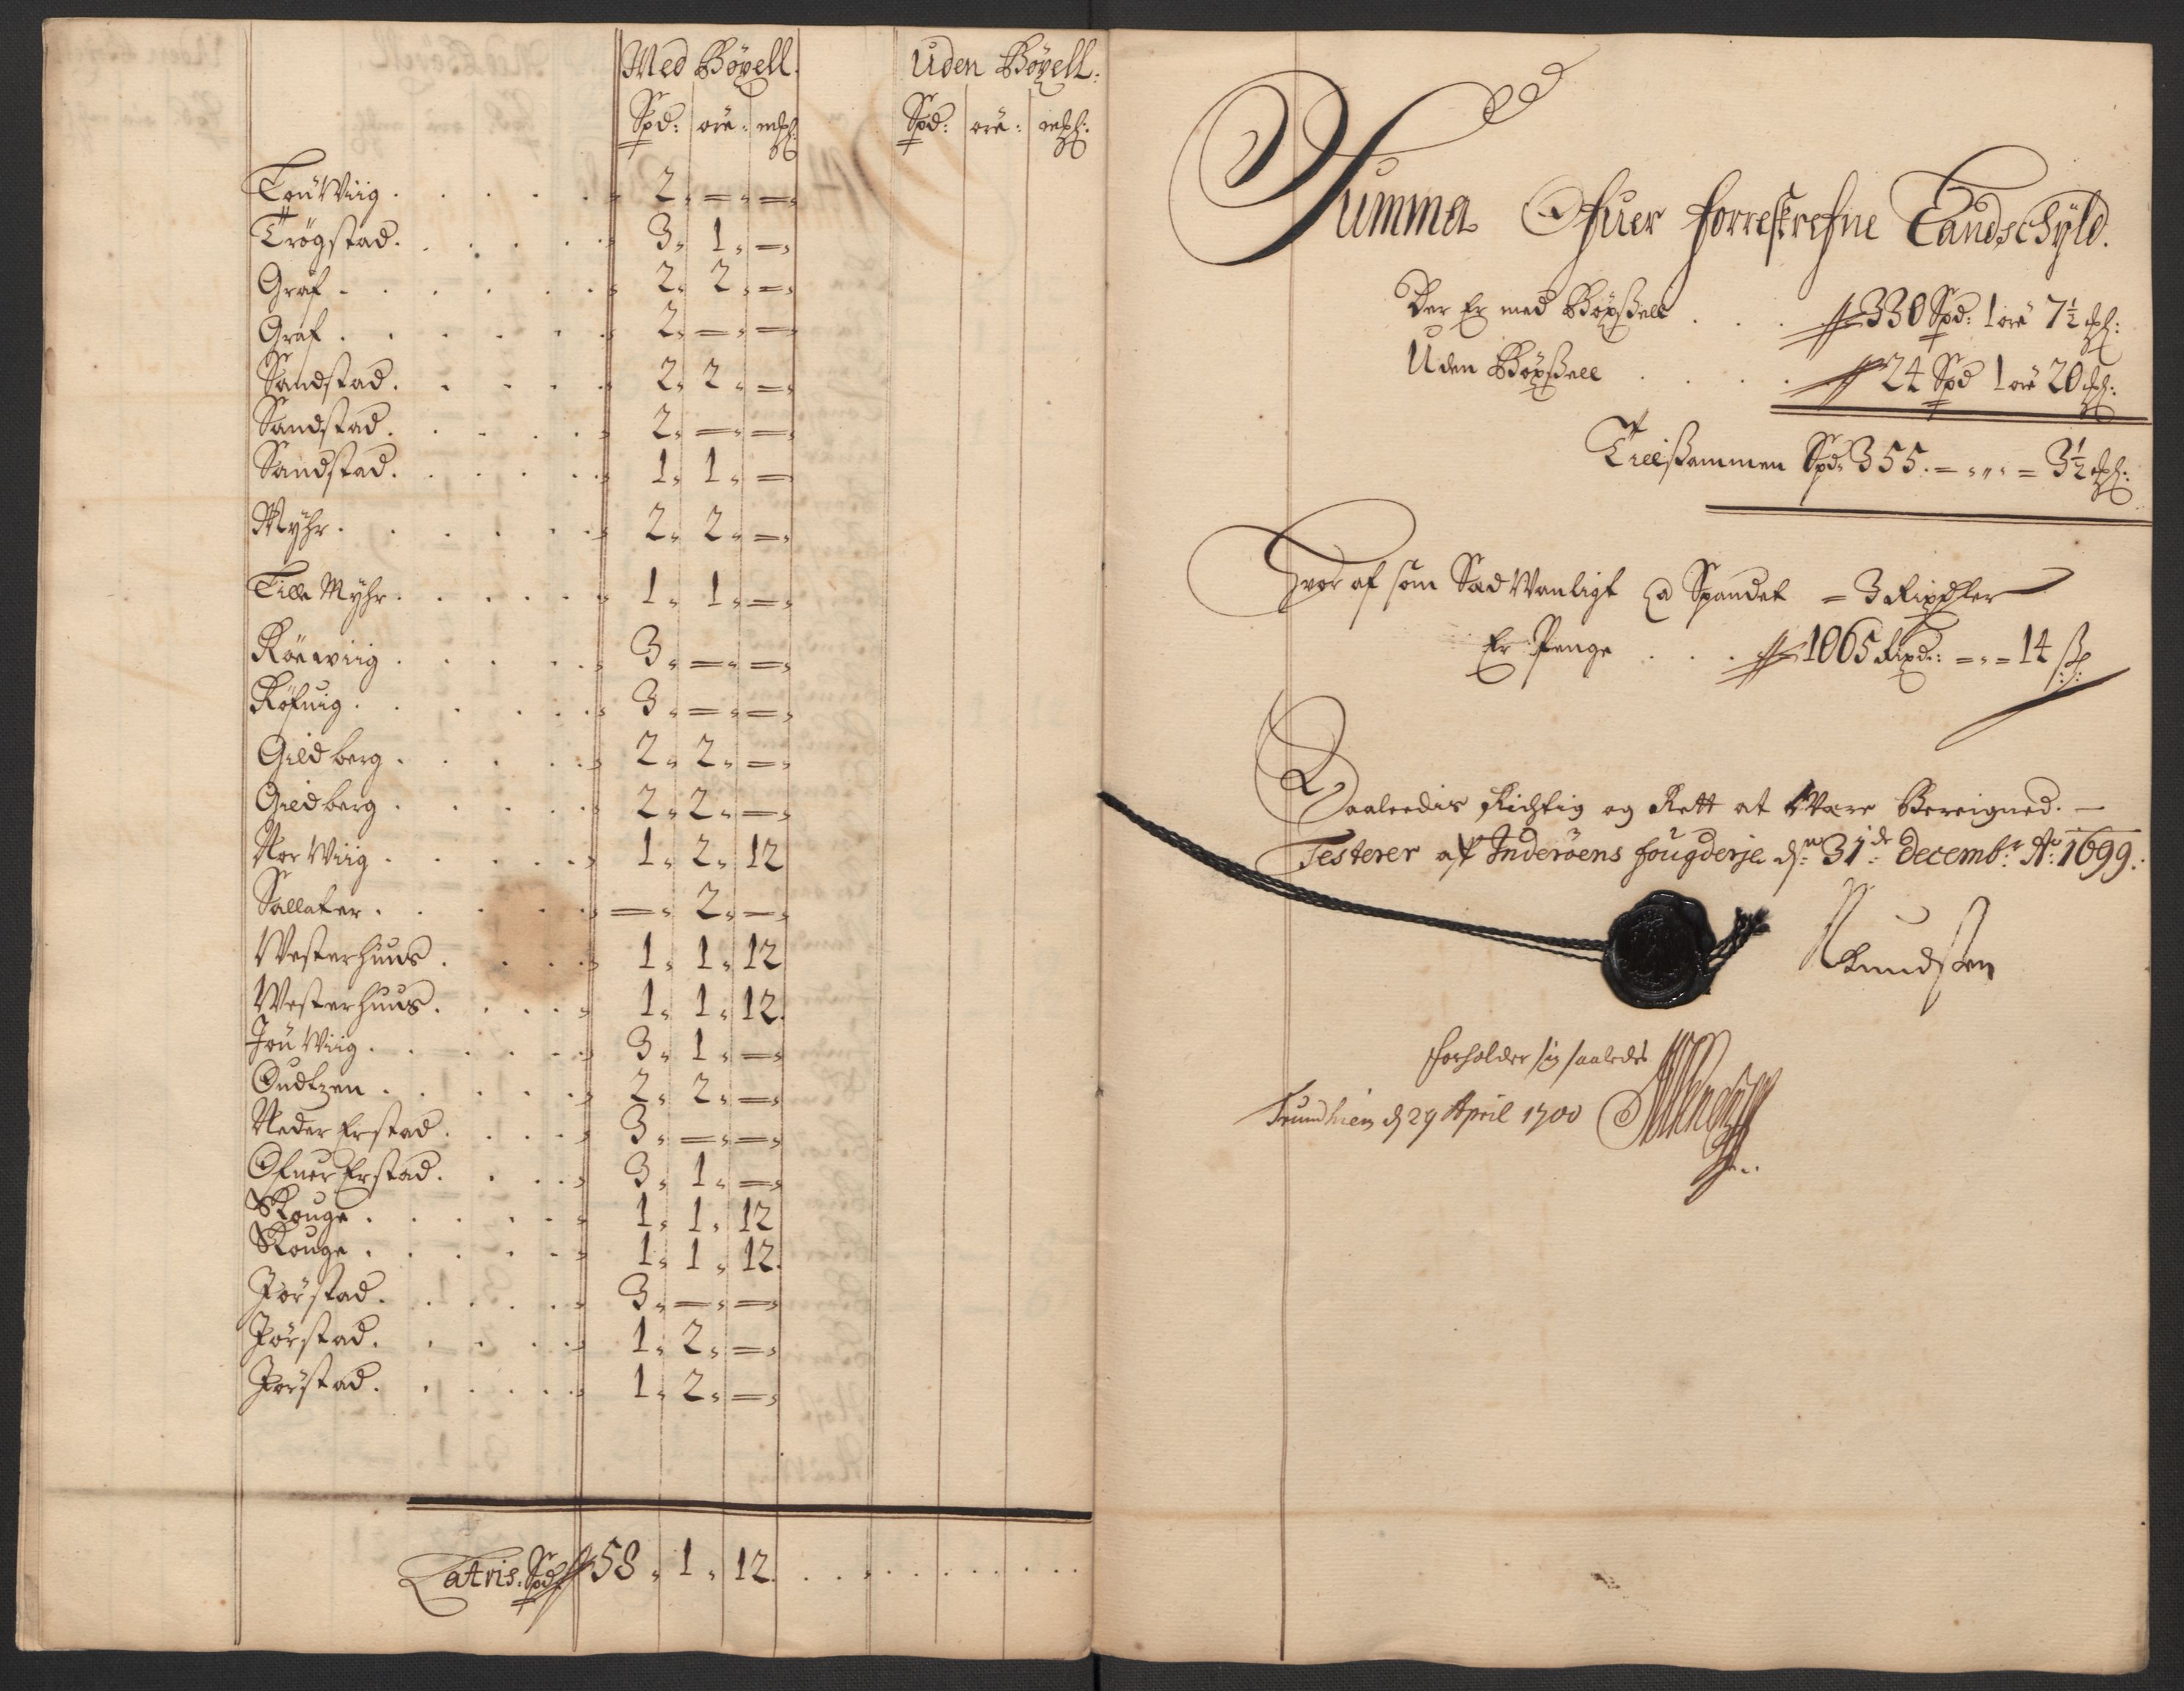 Med Böxell. Uden Böxell:
Spd: öre: mkl: Spd: öre: mkl:
Lou Wiig . . . . . 2 = =
Trögstad . . . . . 3 1 =
Graf . . . . . 2 2 =
Graf . . . . . 2 = =
Sandstad . . . . . 2 2 =
Sandstad . . . . . 2 = =
Sandstad . . . . . 1 1 =
Myhr . . . . . 2 2 =
Lille Myhr . . . . . 1 1 =
Röewiig . . . . . 3 = =
Röfuig . . . . . 3 = =
Gildberg . . . . . 2 2 =
Gildberg . . . . . 2 2 =
Nor Wiig . . . . . 1 2 12
Sallater . . . . . = 2 =
Westerhuus . . . . 1 1 12
Westerhuus . . . . 1 1 12
Jöu Wiig . . . . . 3 1 =
Oudtzen . . . . . 2 2 =
Neder Erstad . . . . 3 = =
Ofuer Erstad . . . . 3 1 =
Skouge . . . . . 1 1 12
Skouge . . . . . 1 1 12
Jörstad . . . . . 3 = =
Jörstad . . . . . 1 2 =
Jörstad . . . . . 1 2 =
Latris. Spd 58 1 12
Summa Ofuer forreskrefne Landschyld.
Der Er med Böxsell . . . 330 Spd: 1 öre 7½ mkl:
Uden Böxsell . . . . 24 Spd 1 öre 20 mkl:
Tillsammen Spd: 355 = = 3½ mkl:
Hvor af som Sædwanligt a Spandet = 3 Rixdler
Er Penge . . . 1065 Rixd: = = 14 ß
Saaledis Richtig og Rett at Være Bereigned. —
Testerer af Inderöens fougderje dn: 31de decembr: Ao: 1699.
Knudsen
forholder sig saaledes
Trundhiem d 29 April 1700